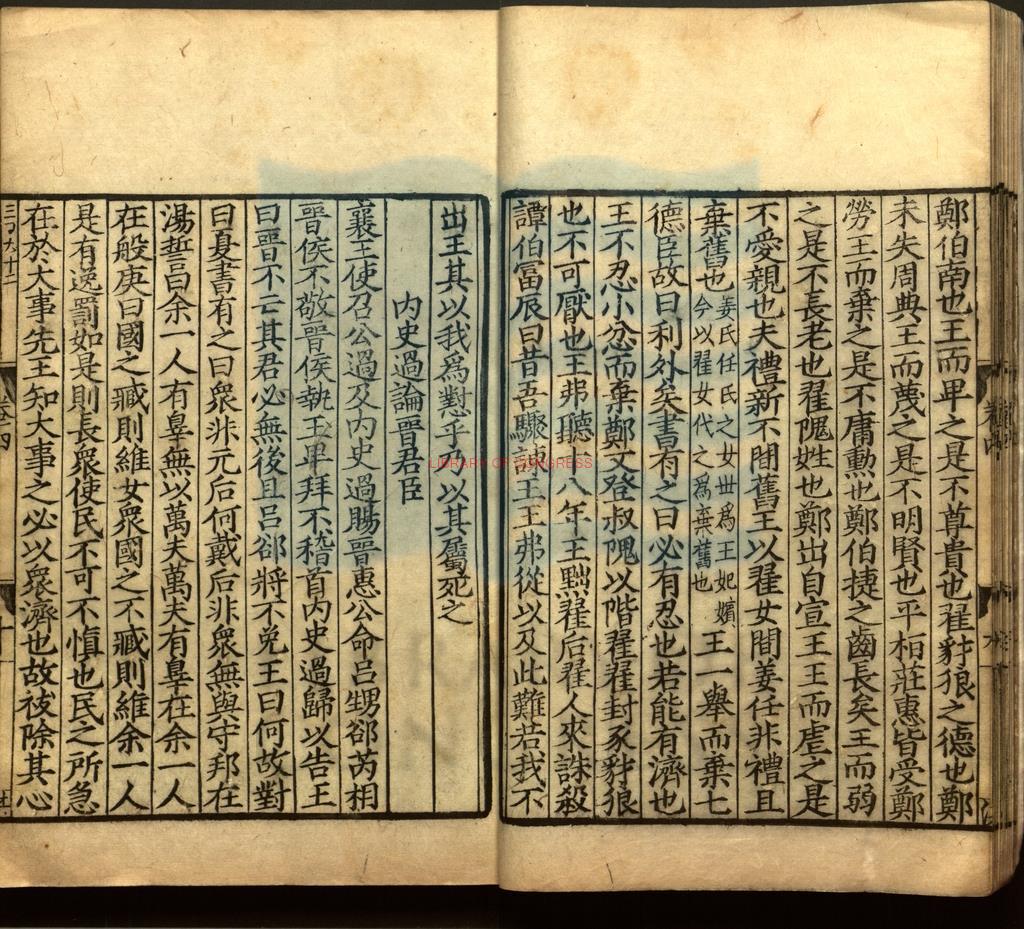 鄭伯南也王而卑之是不尊貴也翟豺狼之德也鄭
未失周典王而蔑之是不明賢也平栢莊惠皆受鄭
勞王而棄之是不庸勲也鄭伯捷之齒長矣王而弱
之是不長老也翟隗姓也鄭出自宣王王而虐之是
不愛親也夫禮新不間舊王以翟女間姜任非禮且
棄舊也姜氏任氏之女世爲王妃嬪今以翟女代之爲棄舊也王一舉而棄七
德臣故曰利外矣書有之曰必有忍也若能有濟也
王不忍小忿而棄鄭又登叔隗以階翟翟封豕豺狼
也不可厭也王弗聽十八年王黜翟后翟人來誅殺
譚伯富辰曰昔吾驟諫王王弗從以及此難若我不
出王其以我爲懟乎乃以其屬死之
內史過論晉君臣
襄王使召公過及內史過賜晉惠公命呂甥郤芮相
晉侯不敬晉侯執玉卑拜不稽首內史過歸以告王
曰晉不亡其君必無後且呂郤將不免王曰何故對
曰夏書有之曰衆非元后何戴后非衆無與守邦在
湯誓曰余一人有辠無以萬夫萬夫有辠在余一人
在般庚曰國之臧則維女衆國之不臧則維余一人
是有逸罰如是則長衆使民不可不慎也民之所急
在於大事先王知大事之必以衆濟也故祓除其心
LIBRARY OF CONGRESS